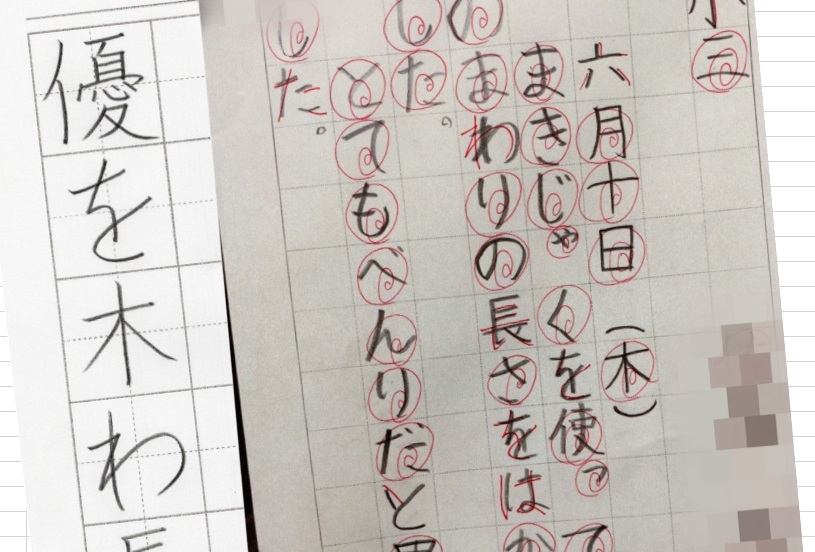 小三
六月十日(木)
まきじゃくを使って
のまわりの長さをはか
した。
とてもべんりだと思
した。
優を木わ